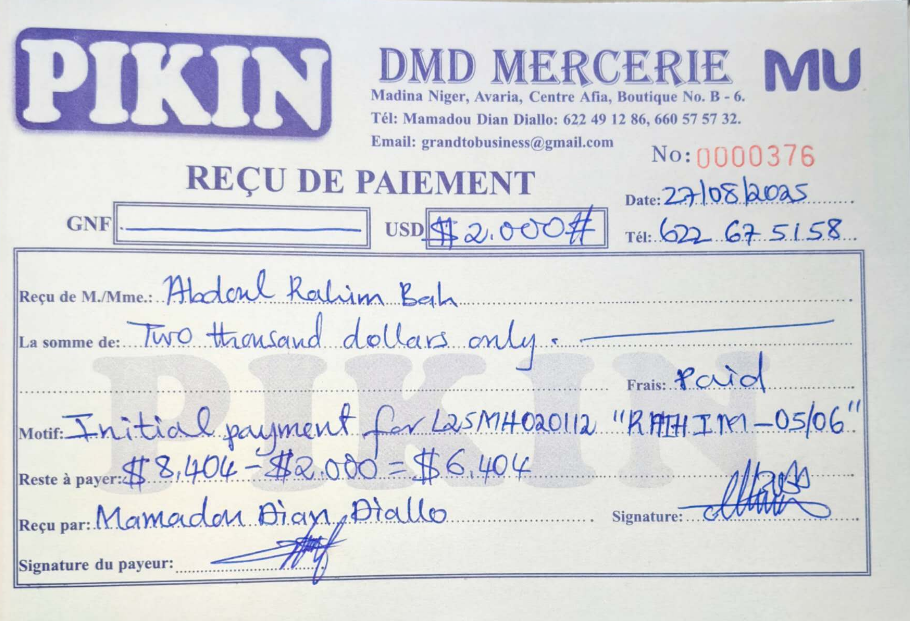 PIKIN
DMD MERCERIE
MU
Madina Niger, Avaria, Centre Afia, Boutique No. B - 6.
Tél: Mamadou Dian Diallo: 622 49 12 86, 660 57 57 32.
Email: grandtobusiness@gmail.com
No: 0000376
REÇU DE PAIEMENT
Date: 27/08/2025
GNF
USD $ 2.000#
Tél: 622 67 51 58
Reçu de M./Mme.: Abdoul Rahim Bah
La somme de: Two thousand dollars only.
Frais: Paid
Motif: Initial payment for L25MH020112 "RAHIM-05/06"
Reste à payer: $8,404 - $2.000 = $6,404
Reçu par: Mamadou Dian Diallo
Signature:
Signature du payeur:
PIKIN